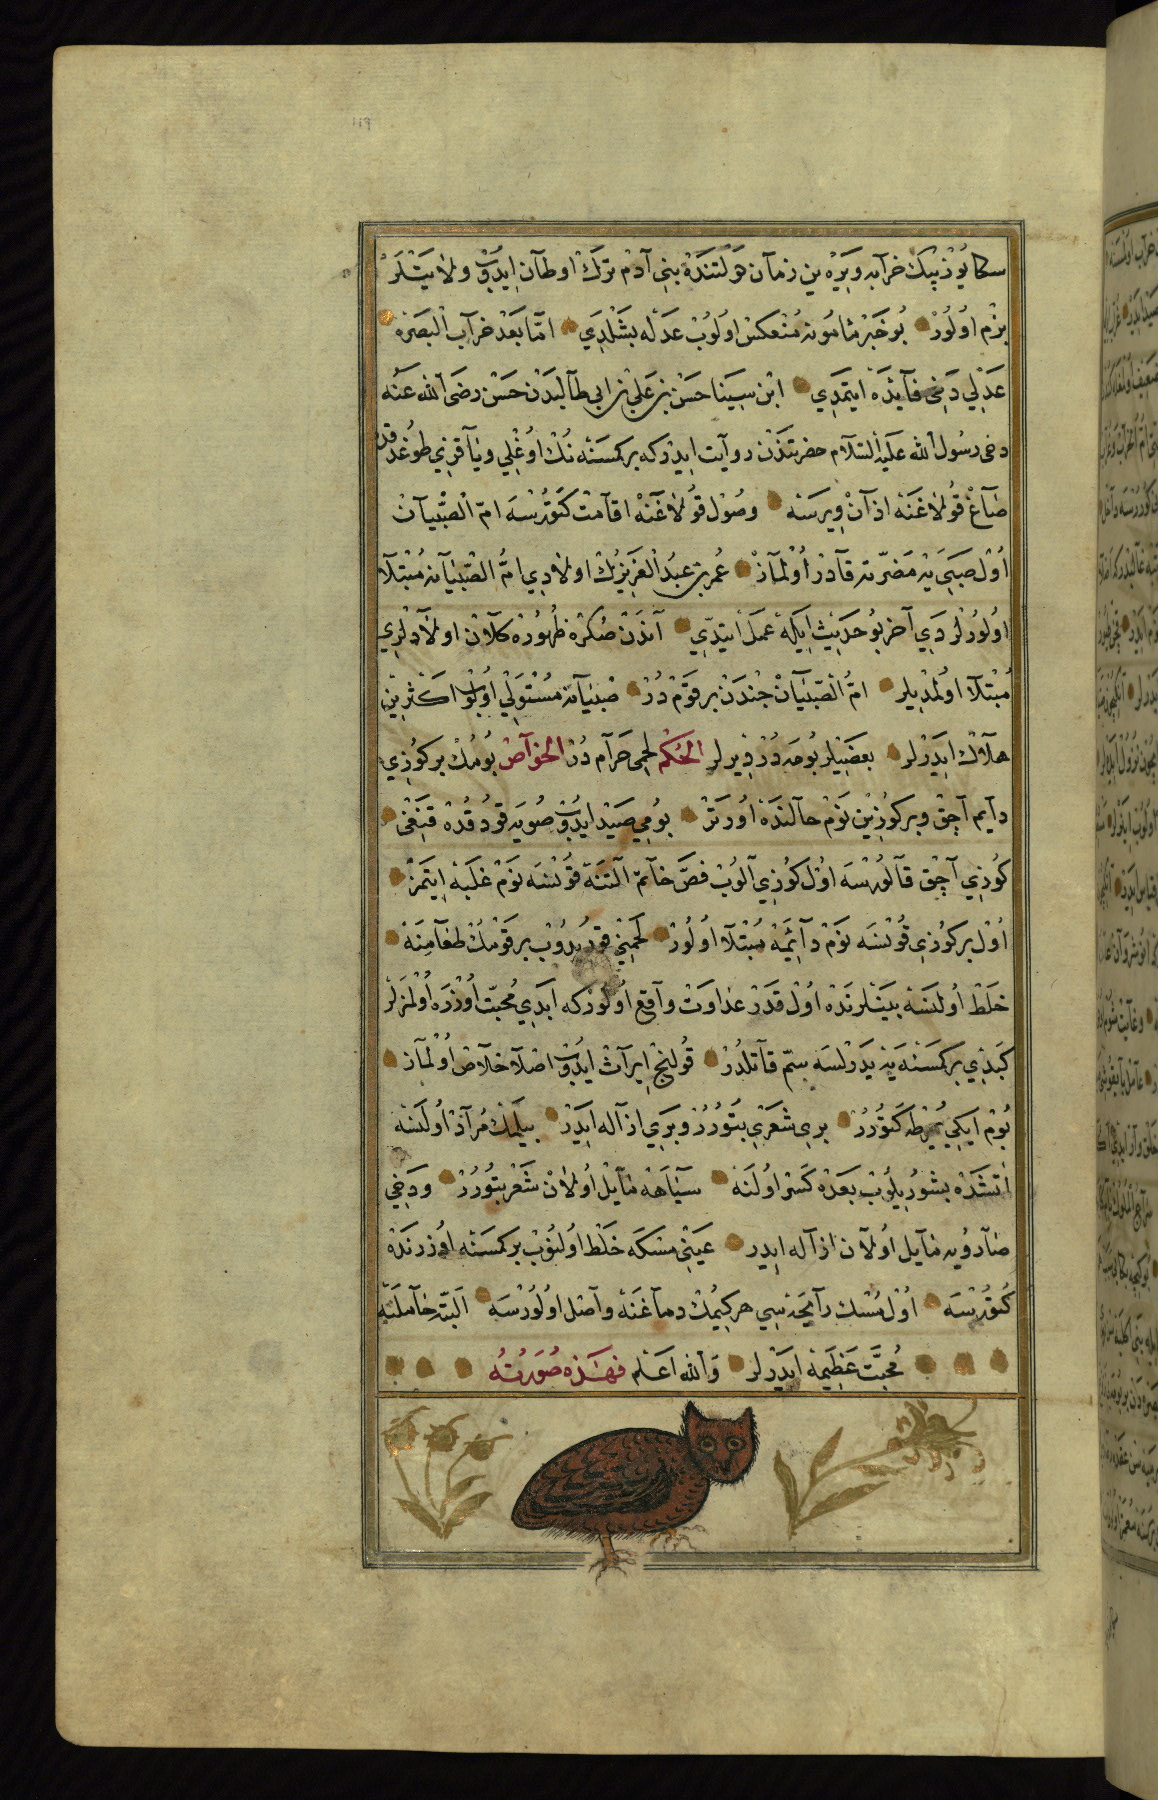 سكا يوز بيك خرابه ويره ين زمان قولتندة بني آدم ترك اوطان ايدوب ولايتلر
بزم اولور بو خبر مامونه منعكس اولوب عدله بشلدي اما بعد خراب البصره
عدلي دخى فايده ايتمدي ابن سينا حسن بن علي بن ابي طالبدن حسن رضى الله عنه
دخى رسول الله عليه السلام حضرتندن روايت ايدركه بركسنه نك اوغلي ويا قزي طوغدقده
صاغ قولاغنه اذان ويرسه وصول قولاغنه اقامت كتورسه ام الصبيان
اول صبي يه مضرته قادر اولماز عمر بن عبد العزيزك اولادي ام الصبيانه مبتلا
اولورلردي آخر بو حديث ايله عمل ايتدي آندن صكره ظهوره كلان اولادلري
مبتلا اولمديلر ام الصبيان جندن بر قوم در صبيانه مستولي اولوب اكثرين
هلاك ايدرلر بعضيلر بومه در ديرلر الحكم لحمى حرام در الخواص بومك بر كوزي
دايم آچق وبر كوزين نوم حالنده اورتر بومي صيد ايدوب صويه قودقده قنغى
كوزي آچق قالورسه اول كوزي آلوب فص خاتم آلتنه قونسه نوم غلبه ايتمز
اول بر كوزى قونسه نوم دائمه مبتلا اولور لحمني قوريدوب بر قومك طعامنه
خلط اولنسه بينلرنده اول قدر عداوت واقع اولوركه ابدي محبت اوزره اولمزلر
كبدي بركسنه يه يدرلسه سم قاتلدر قولنج ايراث ايدوب اصلا خلاص اولماز
بوم ايكي يمرطه كتورر بري شعري بتورر وبري ازاله ايدر بيلمك مراد اولنسه
آتشده بشوريلوب بعده كسر اولنه سياهه مايل اولان شعر بتورر ودخي
صارويه مايل اولان ازاله ايدر عيني مسكه خلط اولنوب بركسنه اوزرنده
كتورسه اول مسك رايحه سي هر كيمك دماغنه واصل اولورسه البته حاملنه
محبت عظيمه ايدرلر والله اعلم فهذه صورته